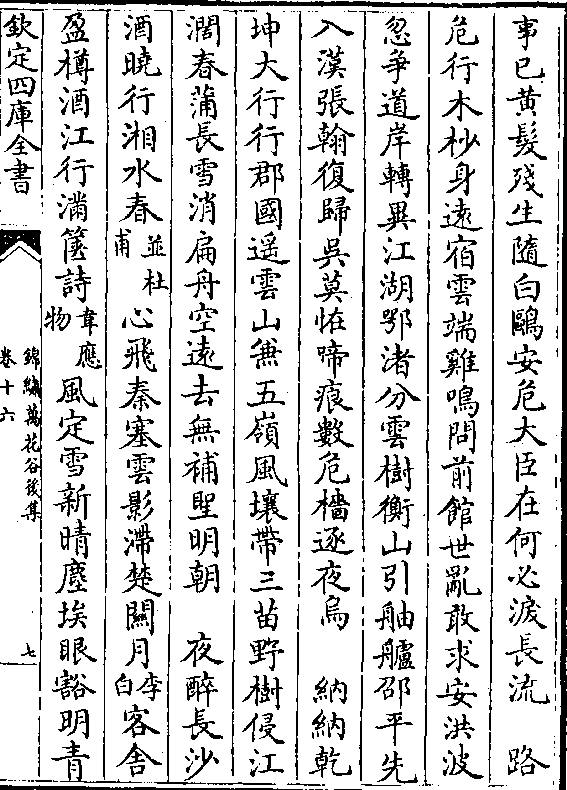 事已黄髮殘生隨白鷗安危大臣在何必淚長流　路
危行木杪身逺宿雲端雞鳴問前館世亂敢求安洪波
忽爭道岸轉異江湖鄂渚分雲樹衡山引舳艫邵平先
入漢張翰復歸吳莫恠啼痕數危檣逐夜烏　納納乾
坤大行行郡國遥雲山兼五嶺風壤帶三苗野樹侵江
濶春蒲長雪消扁舟空逺去無補聖明朝　夜醉長沙
酒曉行湘水春並杜甫　心飛秦塞雲影滯楚闗月李白客舎
盈樽酒江行滿篋詩韋應物風定雪新晴塵埃眼豁明青
欽定四庫全書
錦繡萬花谷後集
卷十六
七